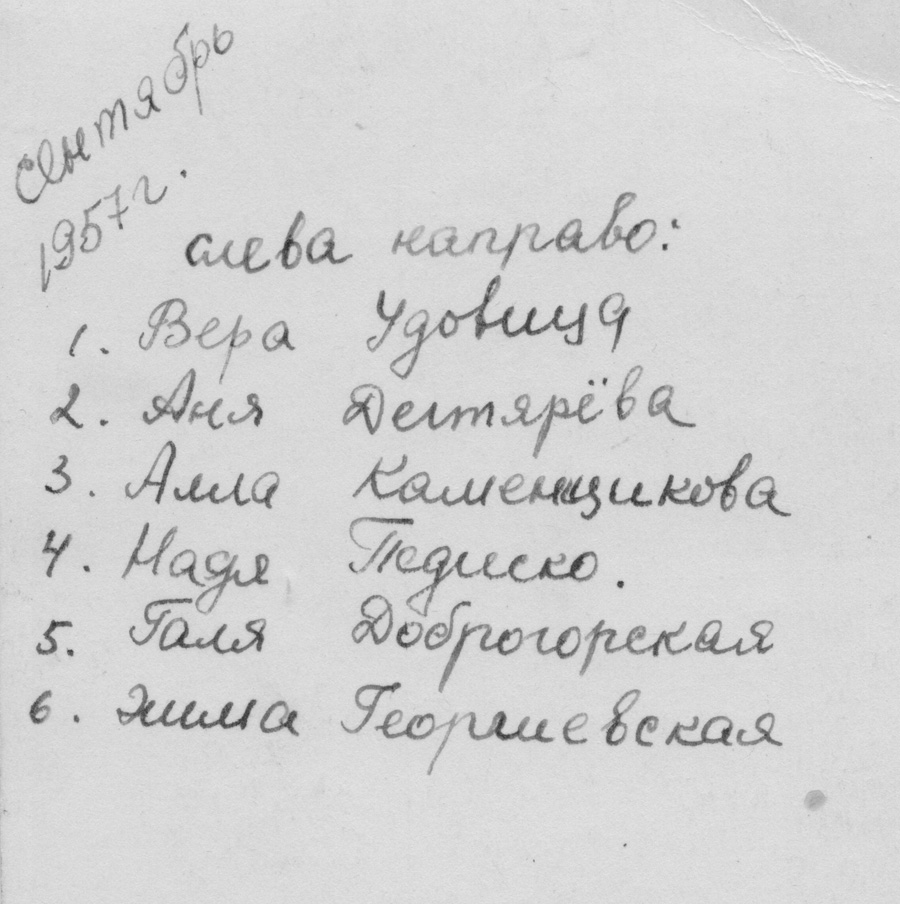 Сентябрь
1957 г.
слева направо:
1. Вера Удовица
2. Аня Дегтярёва
3. Алла Каменщикова
4. Надя Педиско.
5. Галя Доброгорская
6. Эмма Георгиевская